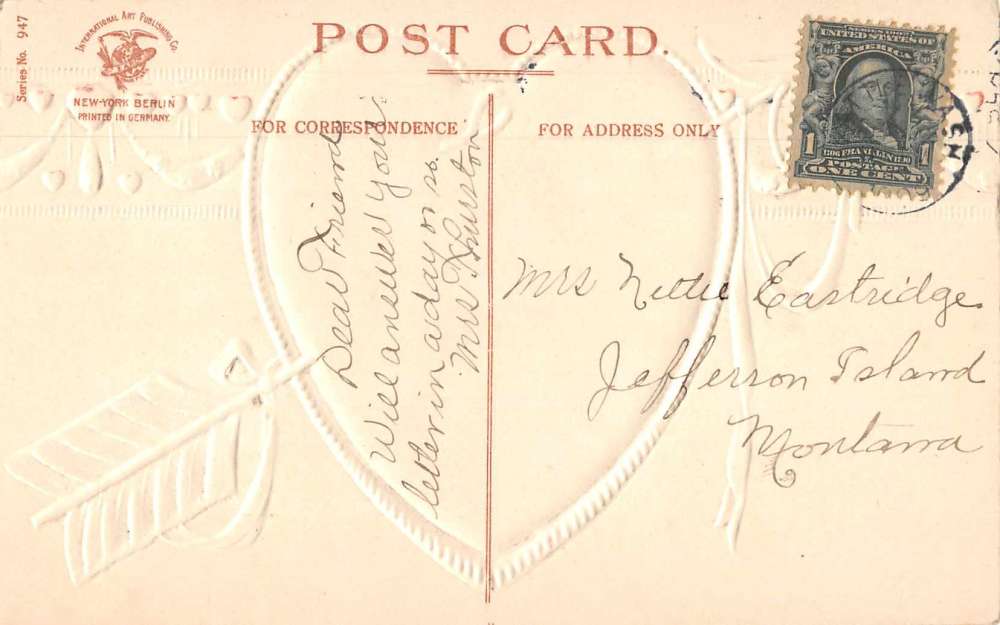 Series No. 947
INTERNATIONAL ART PUBLISHING CO.
NEW-YORK BERLIN
PRINTED IN GERMANY.
POST CARD.
FOR CORRESPONDENCE
FOR ADDRESS ONLY
SERIES 1902
UNITED STATES OF
AMERICA
1706 FRANKLIN 1790
POSTAGE
1 ONE CENT 1
WASH
Dear Friend
Will answer your
letter in a day or so.
Mrs Thurston
Mrs Nettie Eastridge
Jefferson Island
Montana